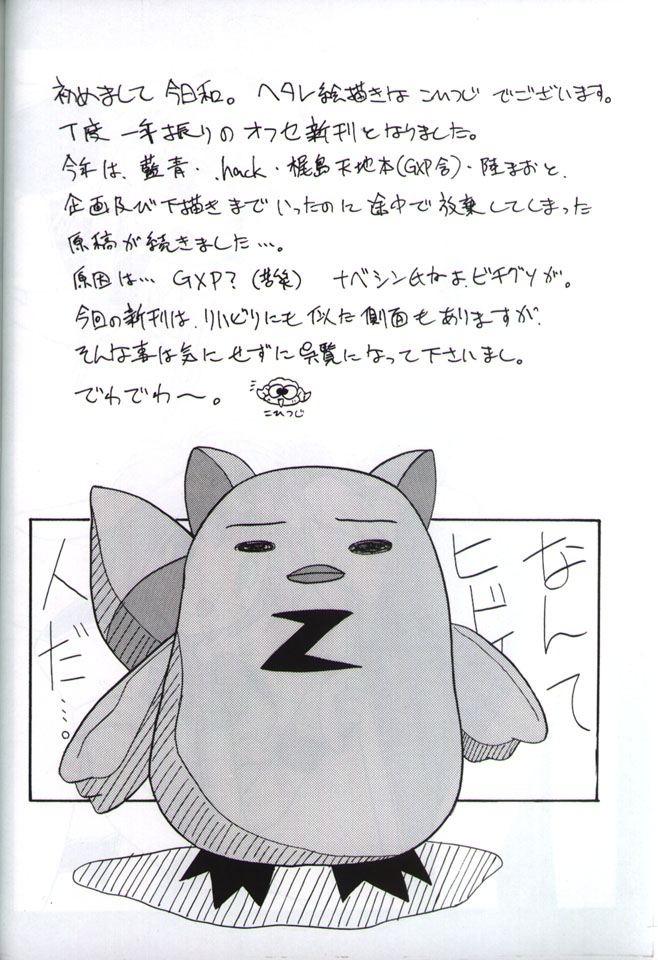 初めまして今日和。ヘタレ絵描きなこひつじでございます。
丁度一年振りのオフセ新刊となりました。
今年は、藍青・.hack・梶島天地本(GXP含)・陸まおと、
企画及び下描きまでいったのに途中で放棄してしまった
原稿が続きました…。
原因は…GXP?(苦笑) ナベシン氏ねよ、ビチグソが。
今回の新刊は、りハビリにも似た側面もありますが、
そんな事は気にせずに呉覧になって下さいまし。
でわでわ〜。
こひつじ
なんて
ヒドイ
人だ…。